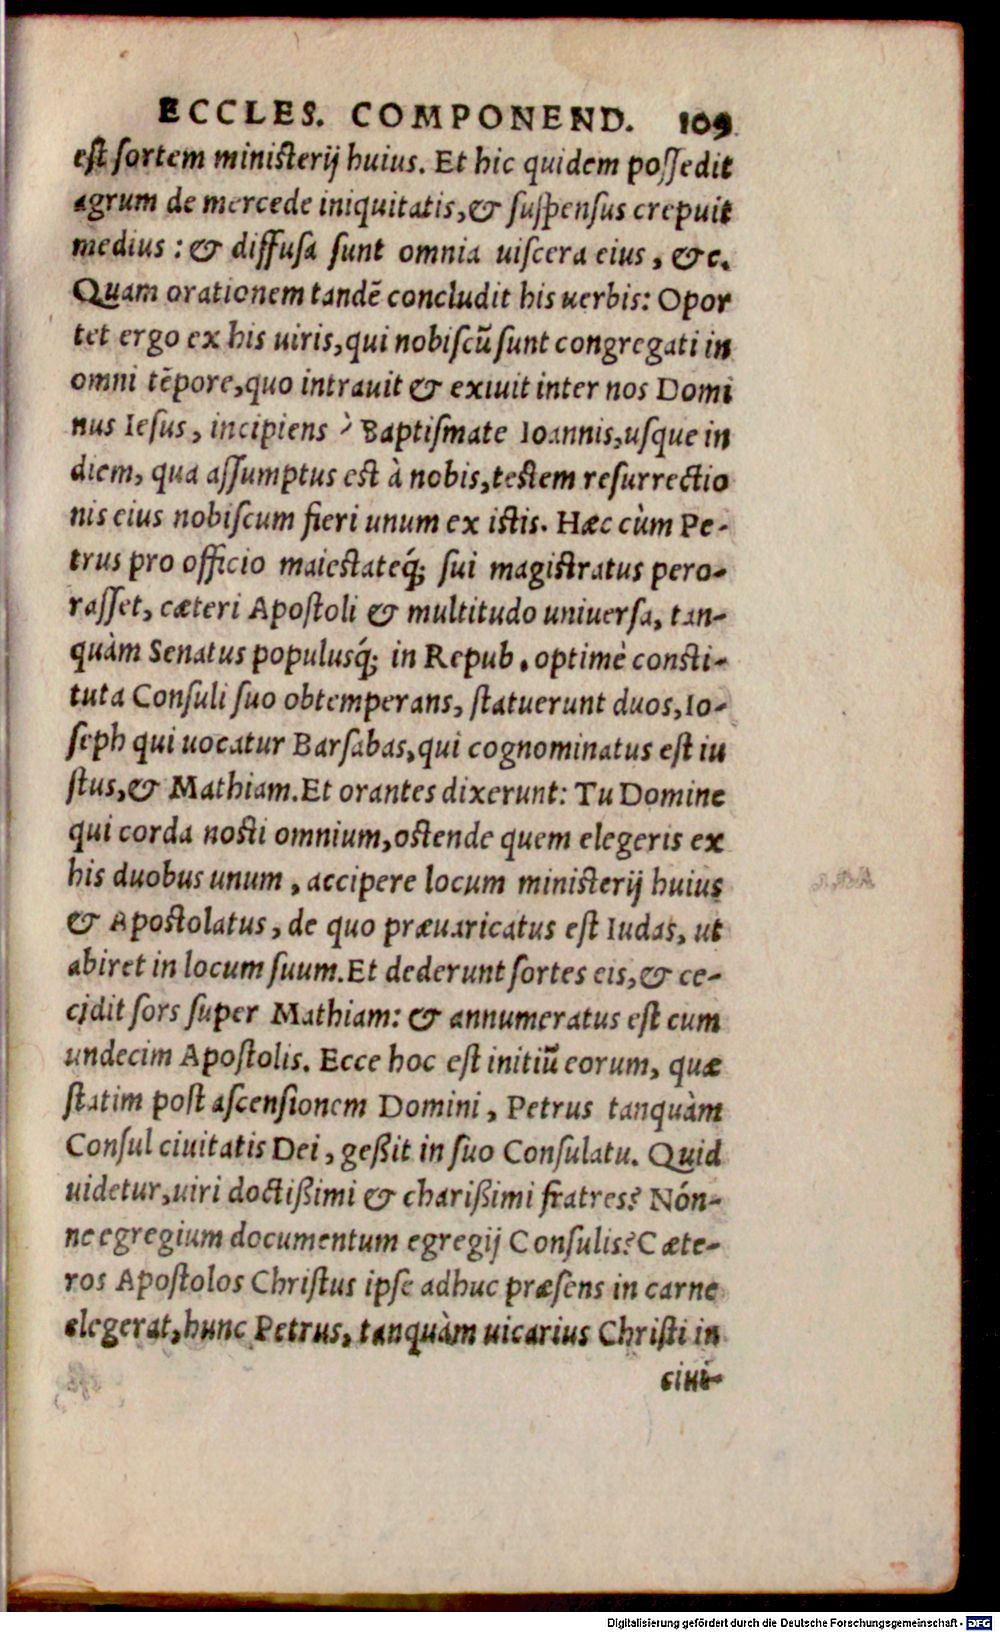 ECCLES. COMPONEND. 109
est sortem ministerij huius. Et hic quidem possedit
agrum de mercede iniquitatis, & suspensus crepuit
medius: & diffusa sunt omnia uiscera eius, &c.
Quam orationem tandē concludit his uerbis: Opor
tet ergo ex his uiris, qui nobiscū sunt congregati in
omni tēpore, quo intrauit & exiuit inter nos Domi
nus Iesus, incipiens à Baptismate Ioannis, usque in
diem, qua assumptus est à nobis, testem resurrectio
nis eius nobiscum fieri unum ex istis. Hæc cùm Pe-
trus pro officio maiestateq́; sui magistratus pero-
rasset, cæteri Apostoli & multitudo uniuersa, tan-
quàm Senatus populusq́; in Repub. optimè consti-
tuta Consuli suo obtemperans, statuerunt duos, Io-
seph qui uocatur Barsabas, qui cognominatus est iu
stus, & Mathiam. Et orantes dixerunt: Tu Domine
qui corda nosti omnium, ostende quem elegeris ex
his duobus unum, accipere locum ministerij huius
& Apostolatus, de quo præuaricatus est Iudas, ut
abiret in locum suum. Et dederunt sortes eis, & ce-
cidit sors super Mathiam: & annumeratus est cum
undecim Apostolis. Ecce hoc est initiū eorum, quæ
statim post ascensionem Domini, Petrus tanquàm
Consul ciuitatis Dei, geßit in suo Consulatu. Quid
uidetur, uiri doctißimi & charißimi fratres? Nón-
ne egregium documentum egregij Consulis? Cæte-
ros Apostolos Christus ipse adhuc præsens in carne
elegerat, hunc Petrus, tanquàm uicarius Christi in
ciui-
Digitalisierung gefördert durch die Deutsche Forschungsgemeinschaft - DFG